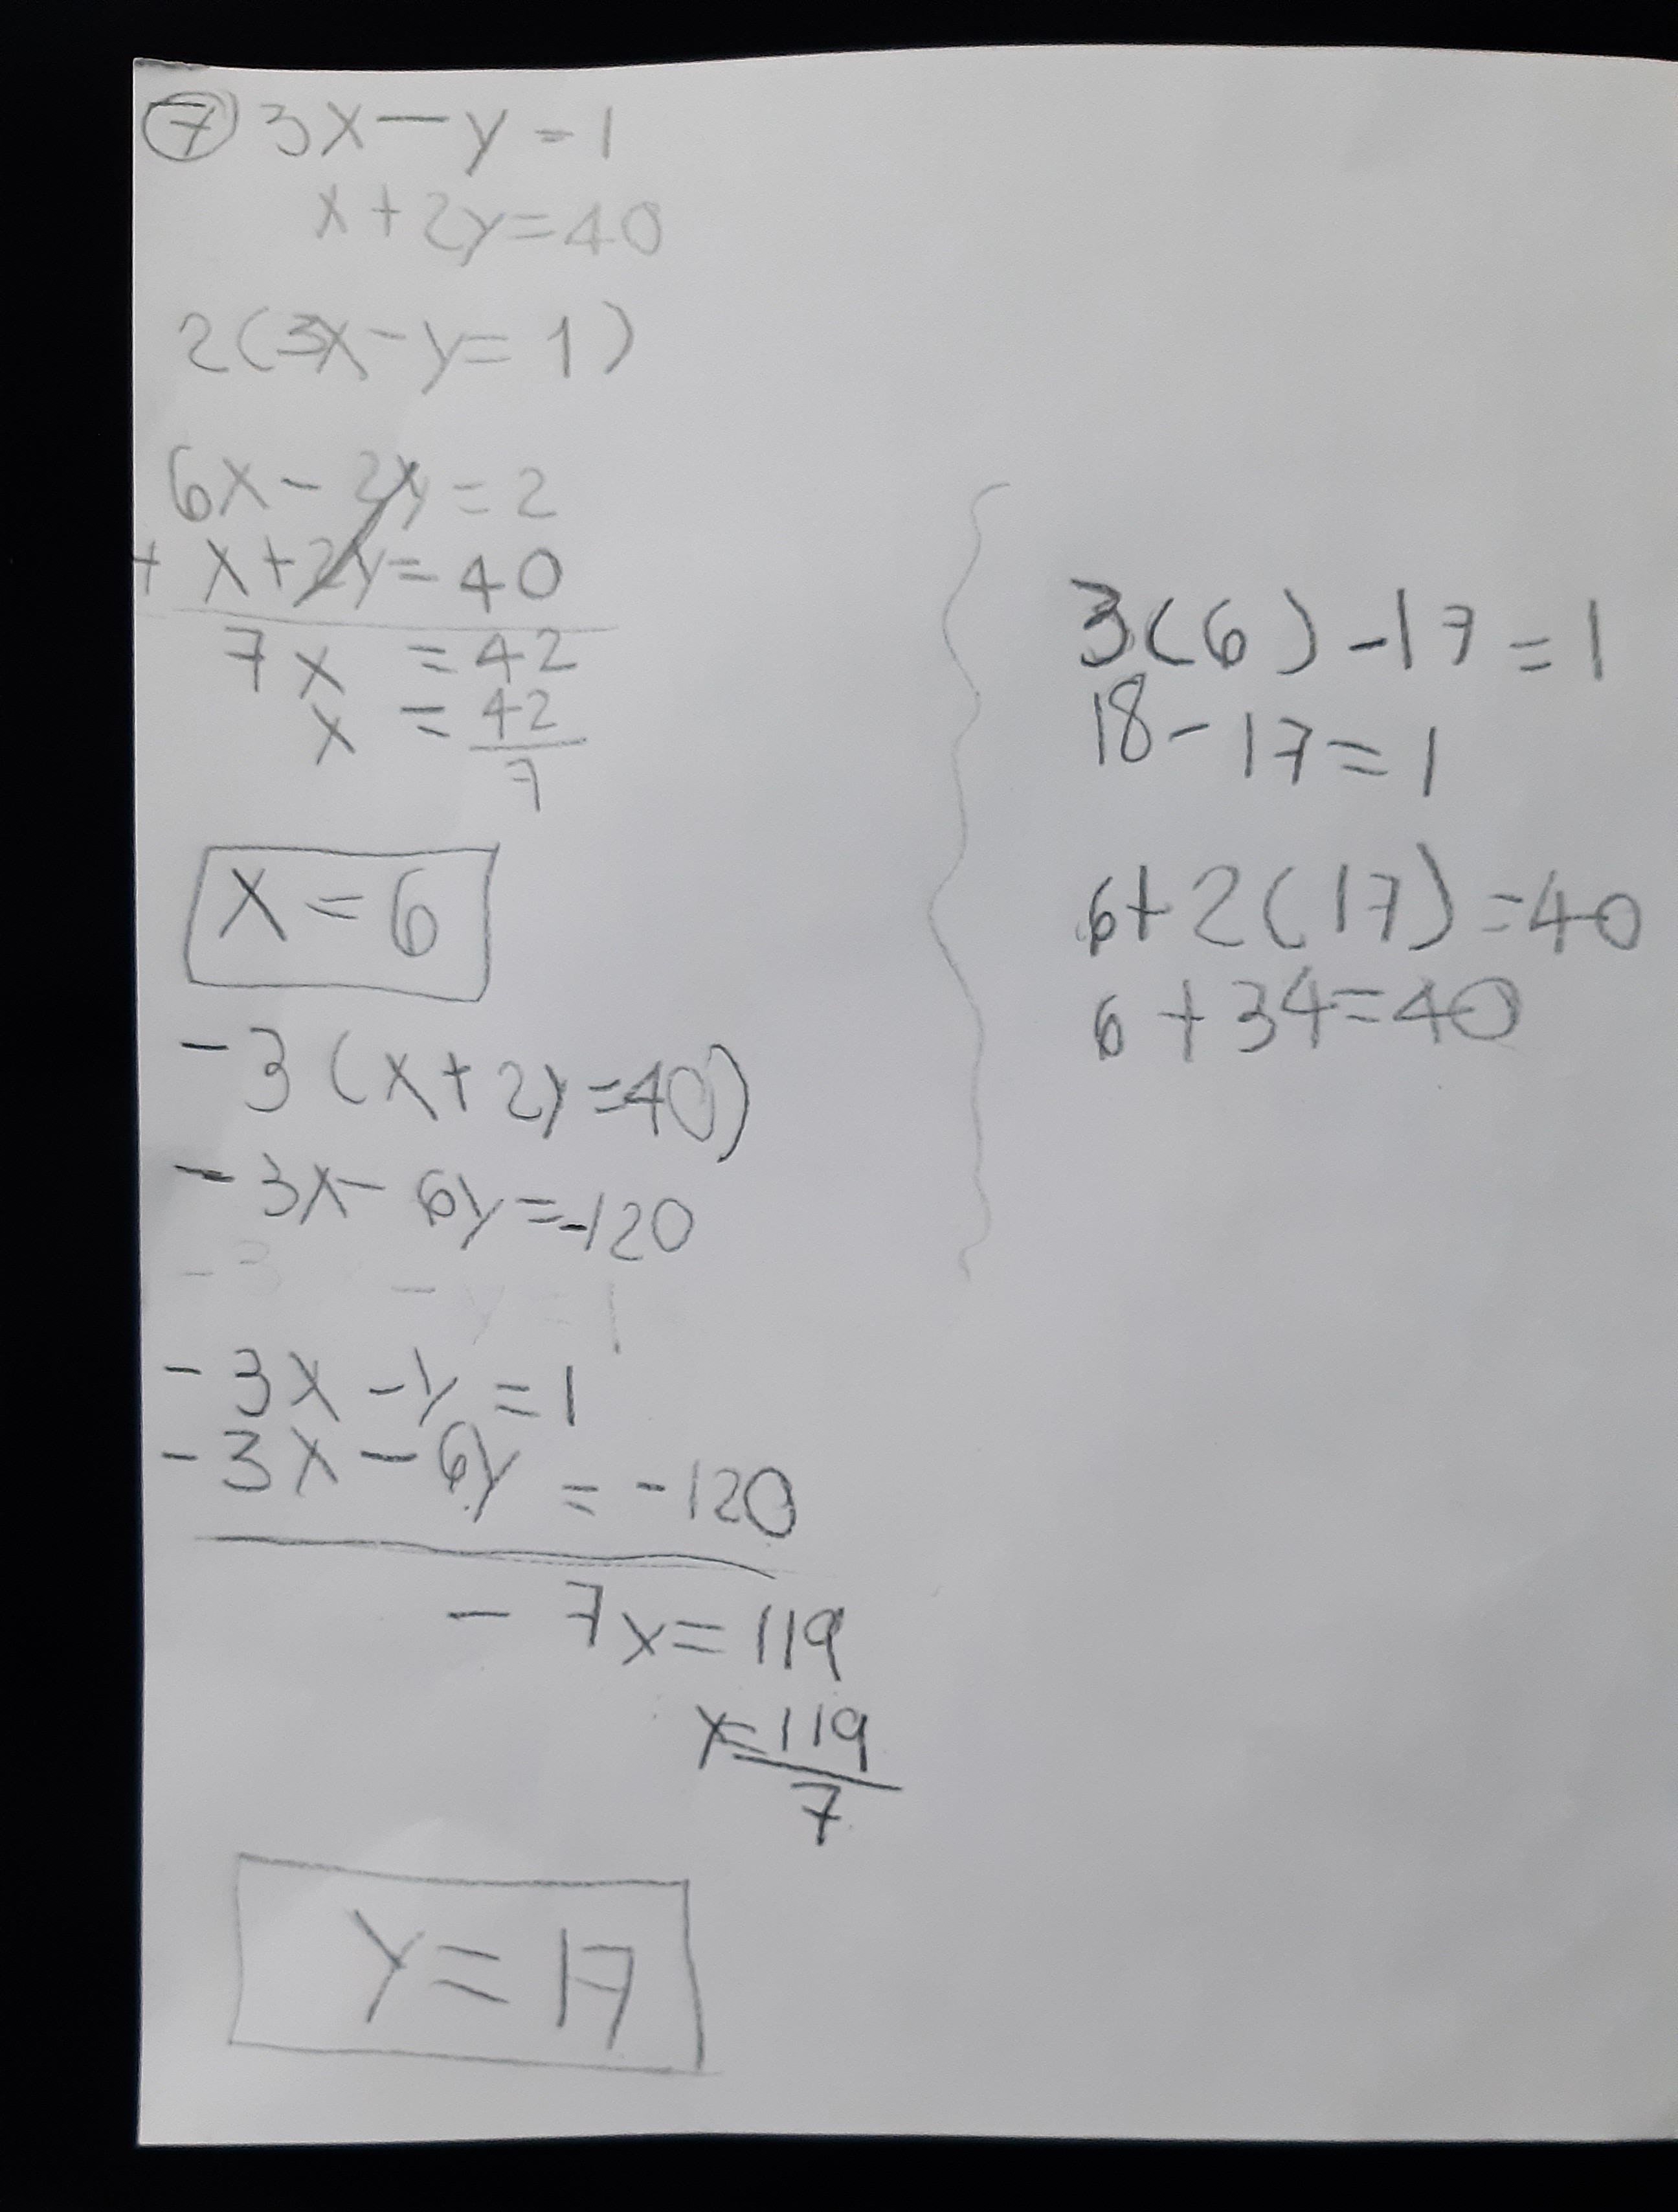 7 3x - y = 1
x + 2y = 40
2(3x - y = 1)
6x - 2y = 2
+ x + 2y = 40
7x = 42
x = 42
7
x = 6
-3(x + 2y = 40)
-3x - 6y = -120
-3 - y = 1
-3x - y = 1
-3x - 6y = -120
- 7x = 119
x = 119
7
y = 17
3(6) - 17 = 1
18 - 17 = 1
6 + 2(17) = 40
6 + 34 = 40